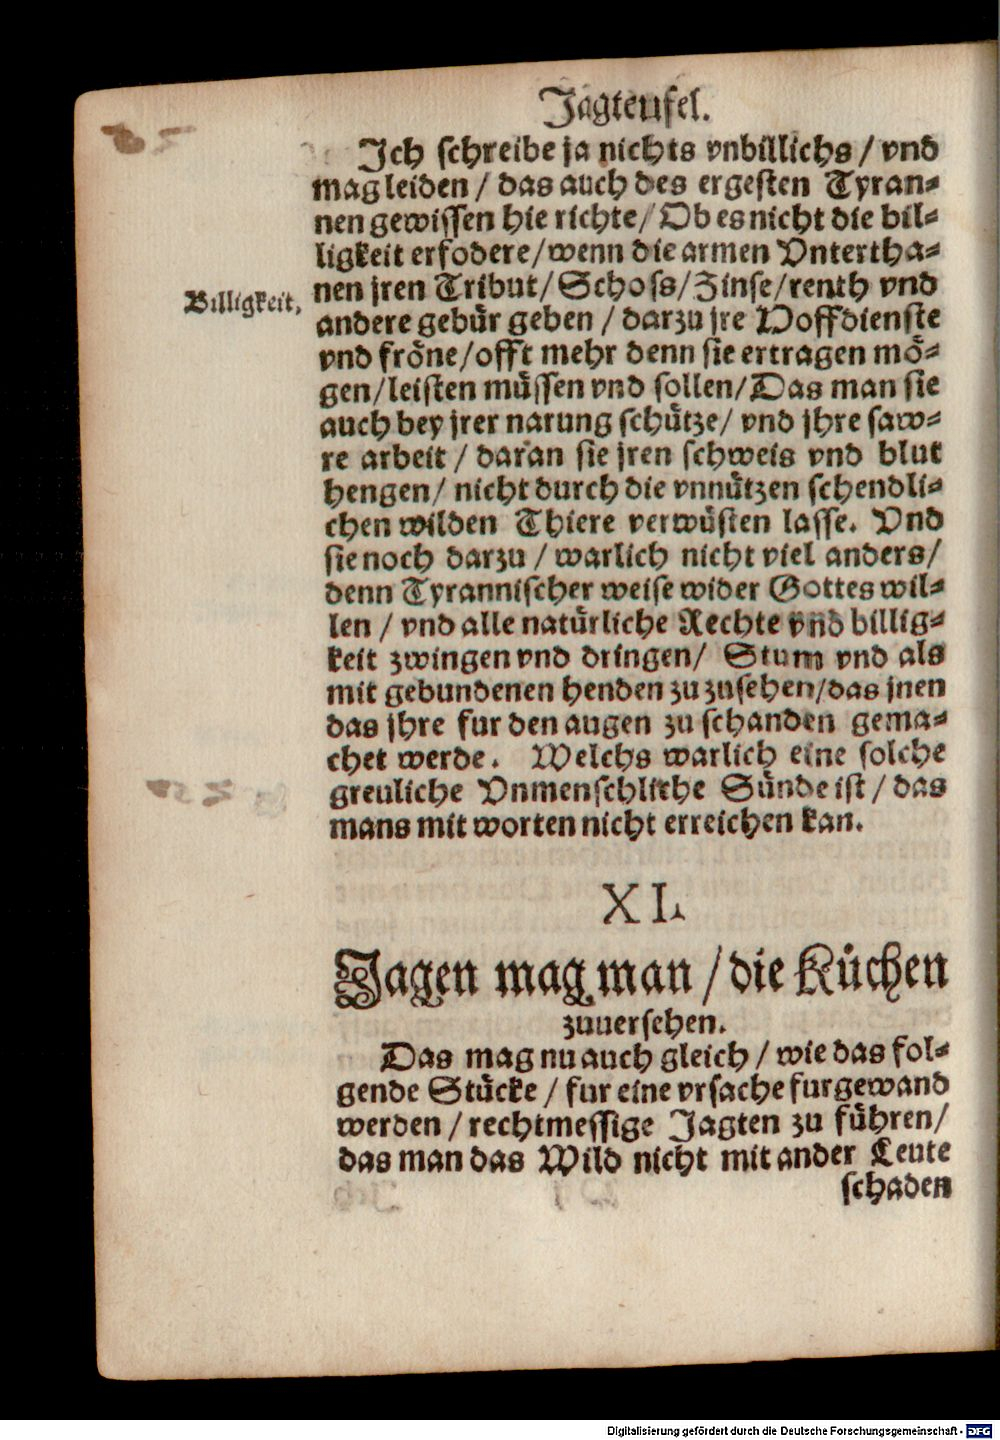 Jagteufel.
Jch schreibe ja nichts vnbillichs / vnd
mag leiden / das auch des ergesten Tyran-
nen gewissen hie richte / Ob es nicht die bil-
ligkeit erfodere / wenn die armen Vntertha-
Billigkeit.
nen jren Tribut / Schoss / Zinse / renth vnd
andere gebür geben / darzu jre Hoffdienste
vnd fröne / offt mehr denn sie ertragen mö-
gen / leisten müssen vnd sollen / Das man sie
auch bey jrer narung schütze / vnd jhre saw-
re arbeit / daran sie jren schweis vnd blut
hengen / nicht durch die vnnützen schendli-
chen wilden Thiere verwüsten lasse. Vnd
sie noch darzu / warlich nicht viel anders /
denn Tyrannischer weise wider Gottes wil-
len / vnd alle natürliche Rechte vnd billig-
keit zwingen vnd dringen / Stum vnd als
mit gebundenen henden zu zusehen / das jnen
das jhre fur den augen zu schanden gema-
chet werde. Welchs warlich eine solche
greuliche Vnmenschliche Sünde ist / das
mans mit worten nicht erreichen kan.
XI.
Jagen mag man / die Küchen
zuuersehen.
Das mag nu auch gleich / wie das fol-
gende Stücke / fur eine vrsache furgewand
werden / rechtmessige Jagten zu führen /
das man das Wild nicht mit ander Leute
schaden
Digitalisierung gefördert durch die Deutsche Forschungsgemeinschaft - DFG